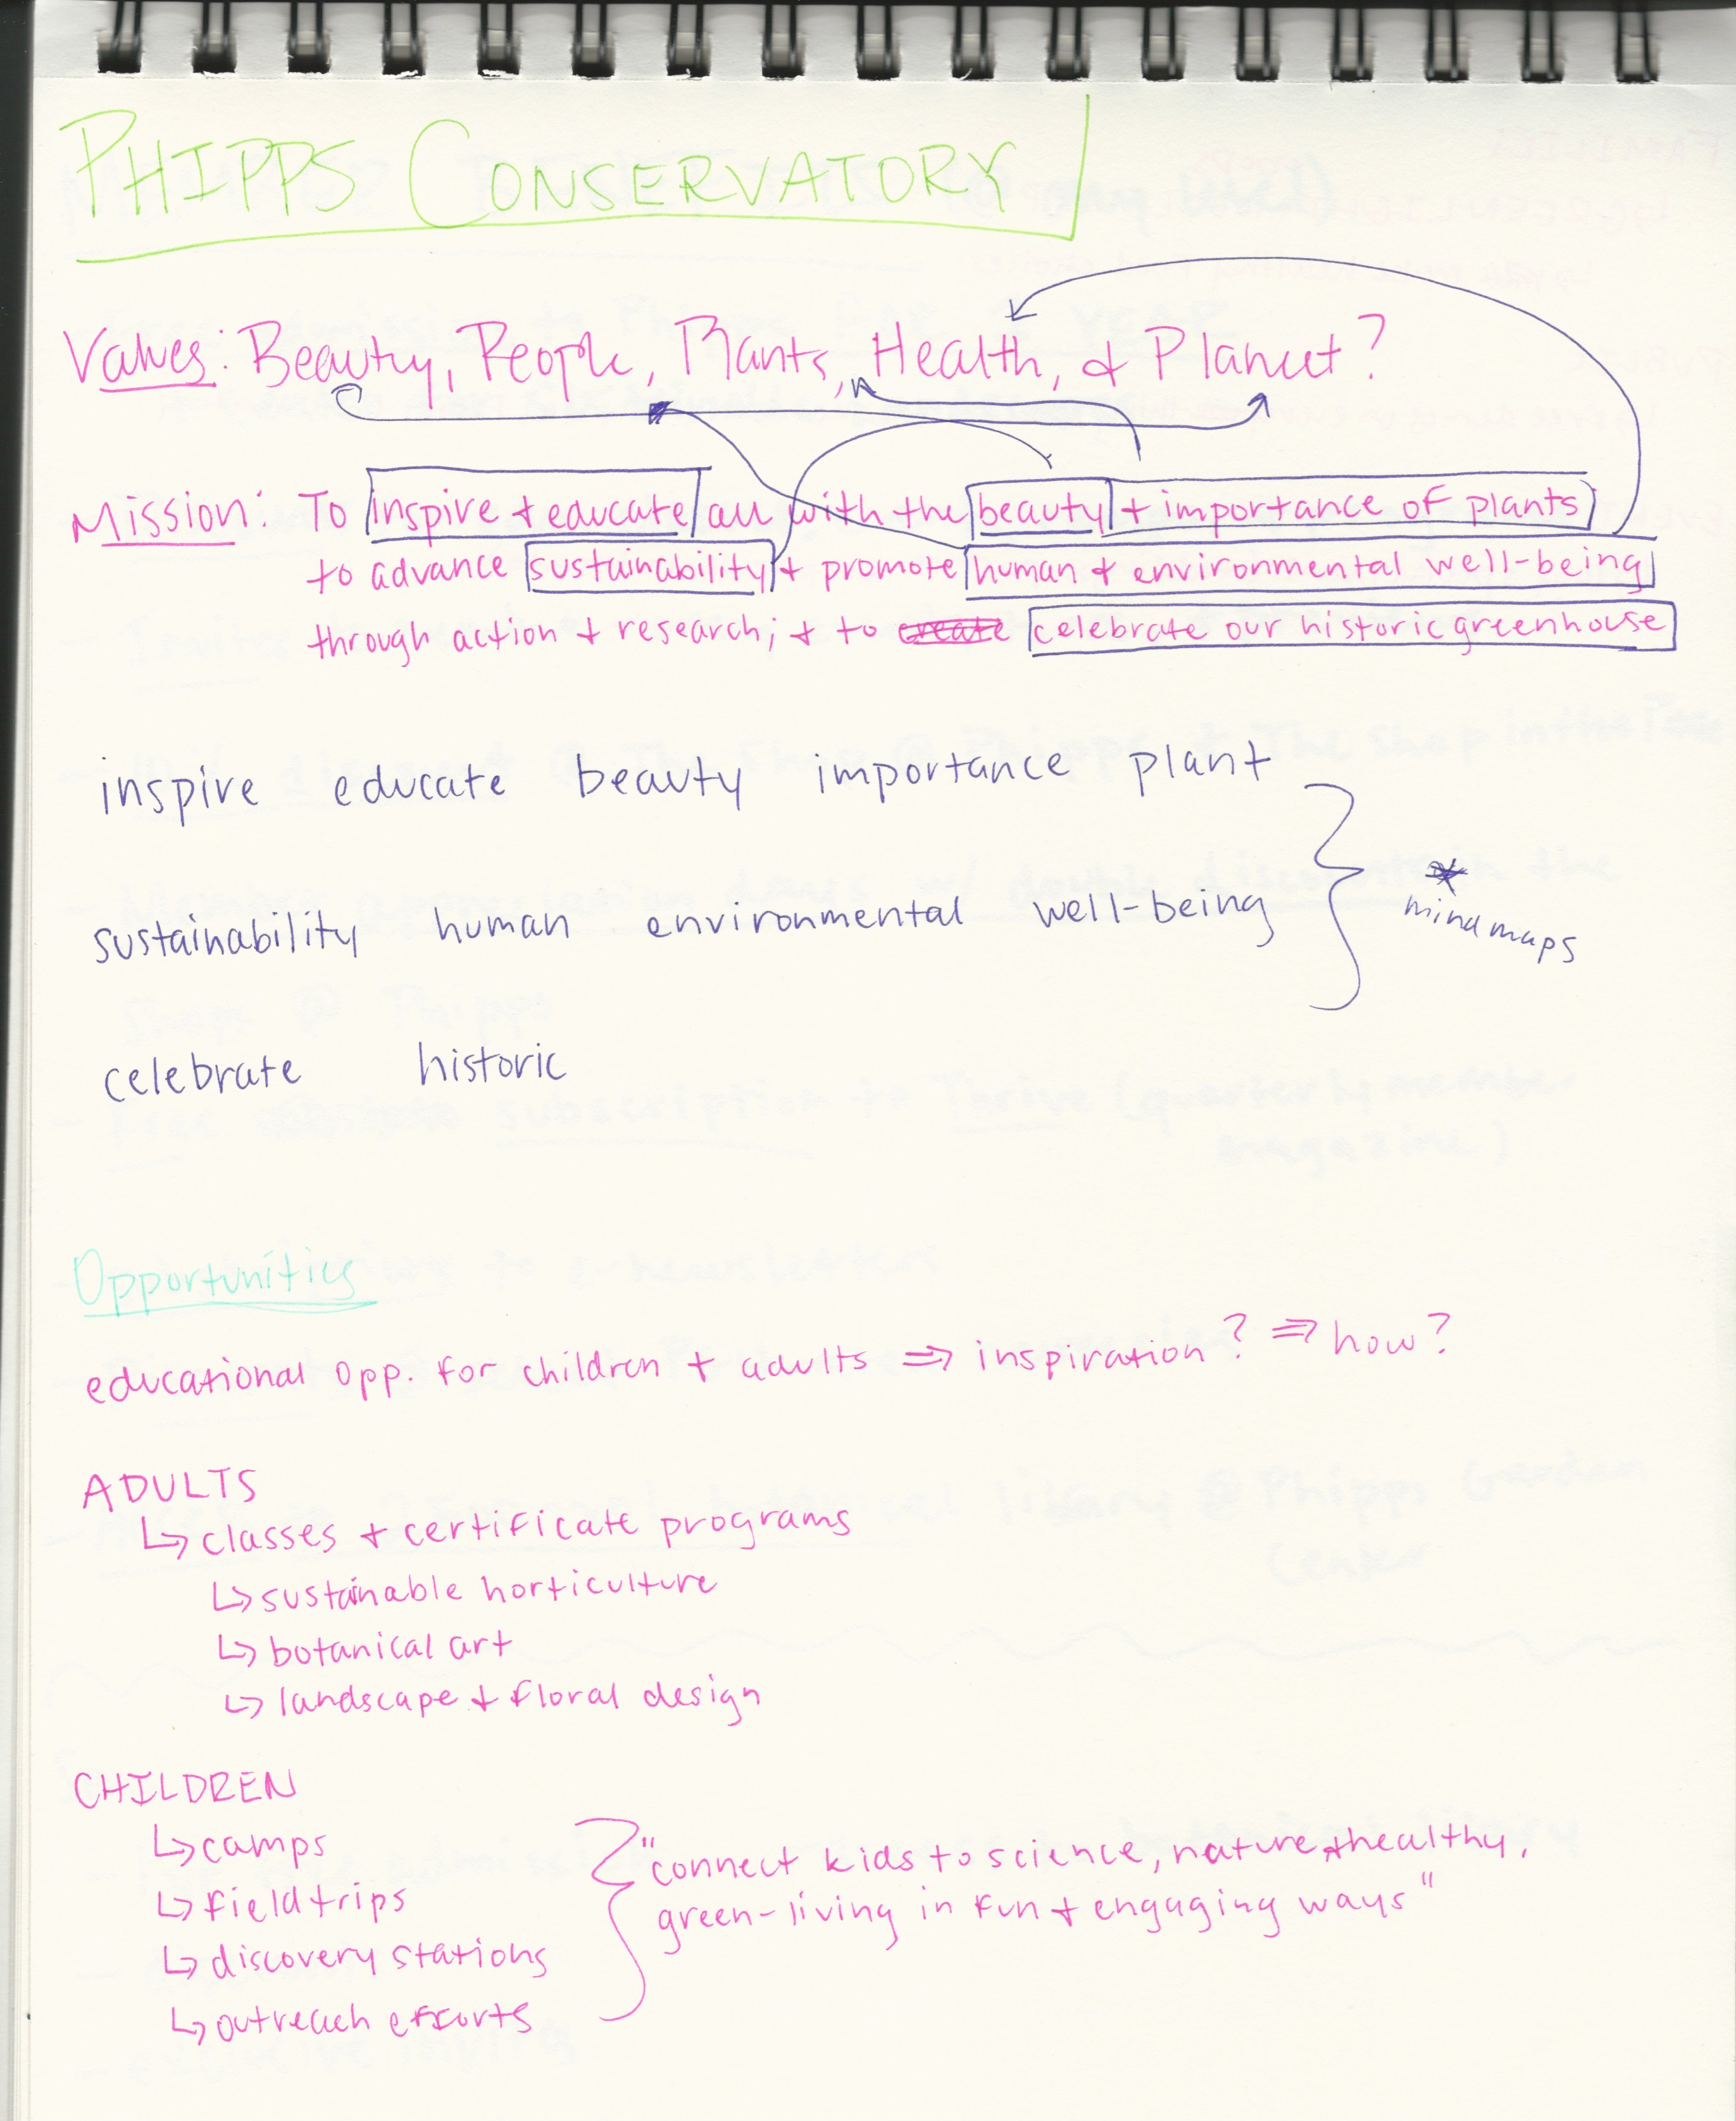 PHIPPS CONSERVATORY
Values: Beauty, People, Plants, Health, & Planet?
Mission: To inspire + educate all with the beauty + importance of plants
to advance sustainability + promote human + environmental well-being
through action + research; + to create celebrate our historic greenhouse
inspire educate beauty importance plant
sustainability human environmental well-being
* mind maps
celebrate historic
Opportunities
educational opp. for children + adults ⇒ inspiration? ⇒ how?
ADULTS
↳ classes + certificate programs
↳ sustainable horticulture
↳ botanical art
↳ landscape + floral design
CHILDREN
↳ camps
↳ field trips
↳ discovery stations
↳ outreach efforts
"connect kids to science, nature + healthy,
green-living in fun + engaging ways"